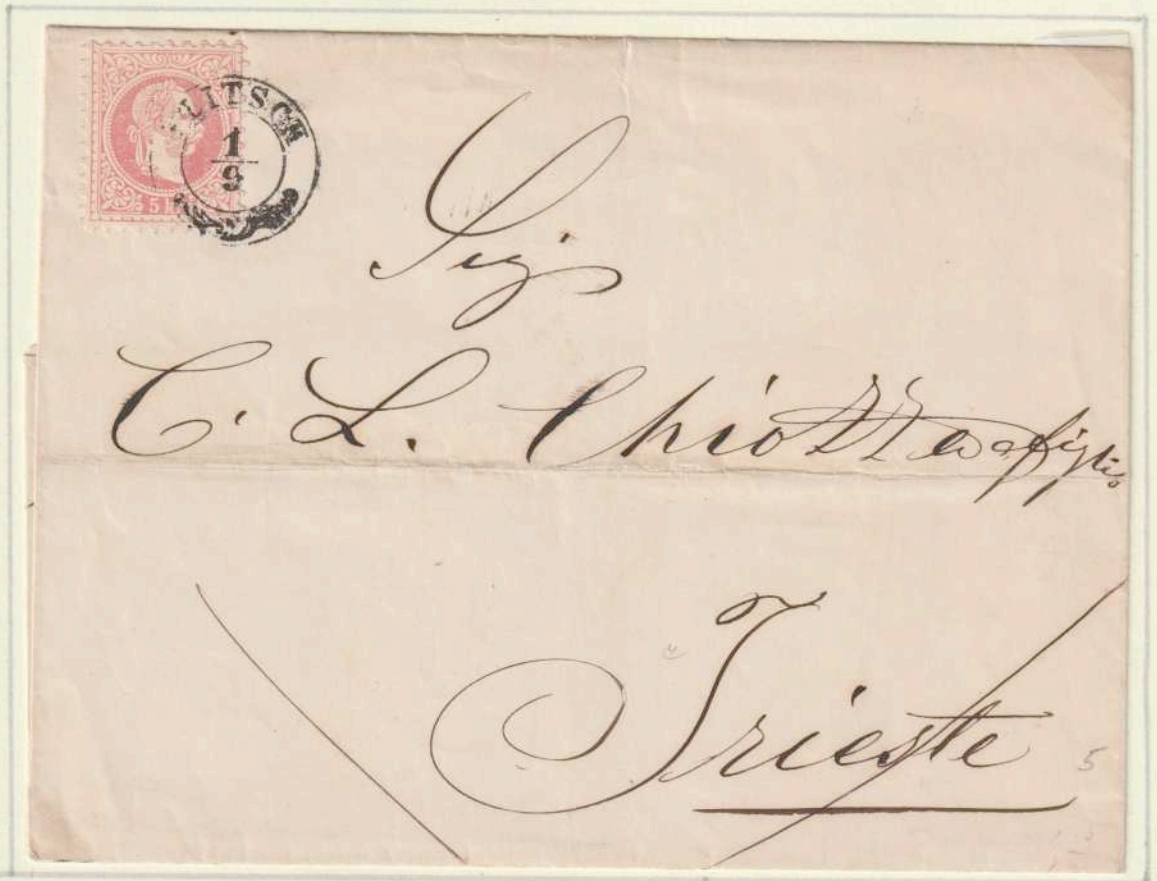 FLITSCH
1
9
5
Sig.
C. L. Chiozza e figlio
Trieste
5